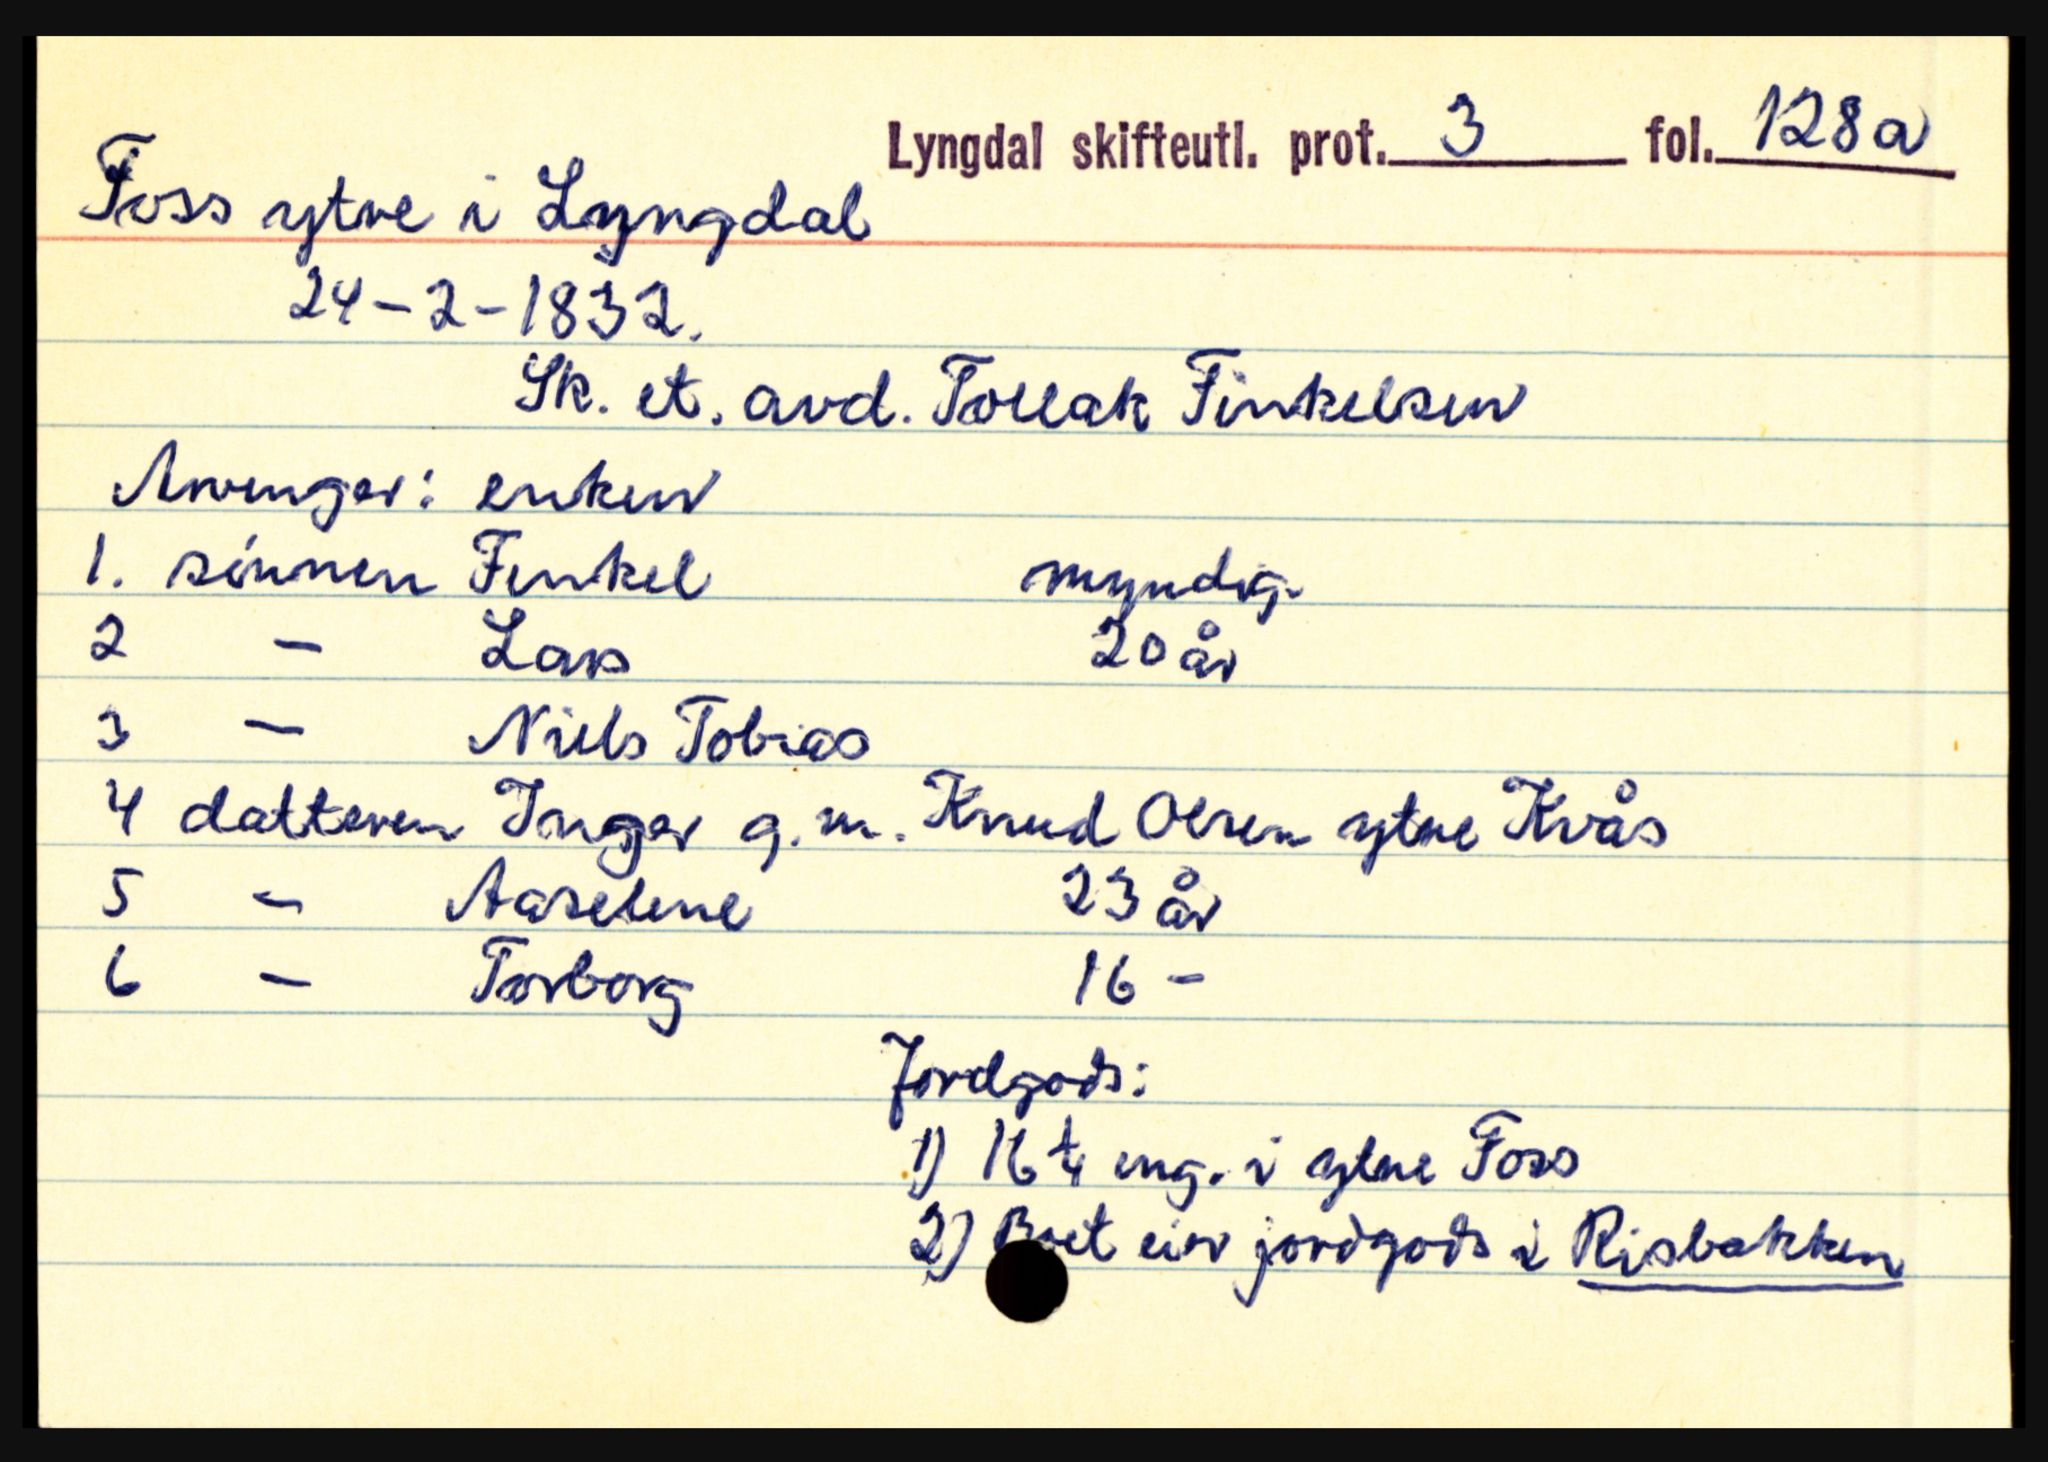 Lyngdal skifteutl. prot. 3 fol. 128a
Foss ytre i Lyngdal
24-2-1832.
Sk. et. avd. Tollak Finkelsen
Arvinger: enken
1. sønnen Finkel myndig
2 - Lars 20 år
3 - Niels Tobias
4 datteren Inger g.m. Knud Olsen ytre Kvås
5 - Aaselene 23 år
6 - Torborg 16 -
Jordgods:
1) 16 eng. i ytre Foss
2) Boet eier jordgods i Risbakken